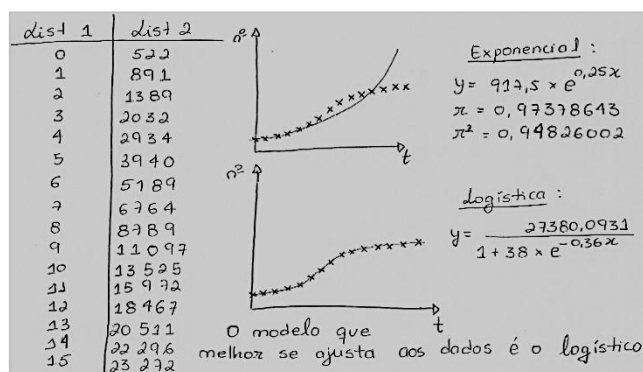 List 1 List 2
0 522
1 891
2 1389
3 2032
4 2934
5 3940
6 5189
7 6764
8 8789
9 11097
10 13525
11 15972
12 18467
13 20511
14 22296
15 23272
nº
t
nº
t
Exponencial :
y = 917,5 × e^0,25x
r = 0,97378643
r² = 0,94826002
Logística :
y = 27380,0931 / 1 + 38 × e^-0,36x
O modelo que
melhor se ajusta aos dados é o logístico